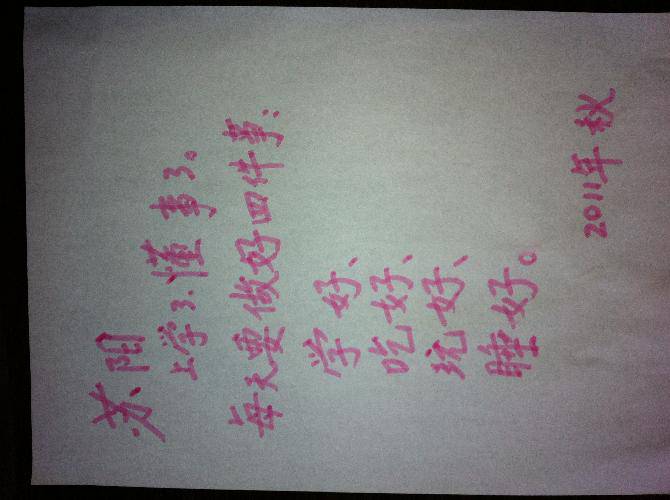 苏阳
上学了.懂事了。
每天要做好四件事:
学好、
吃好、
玩好、
睡好。
2011年权